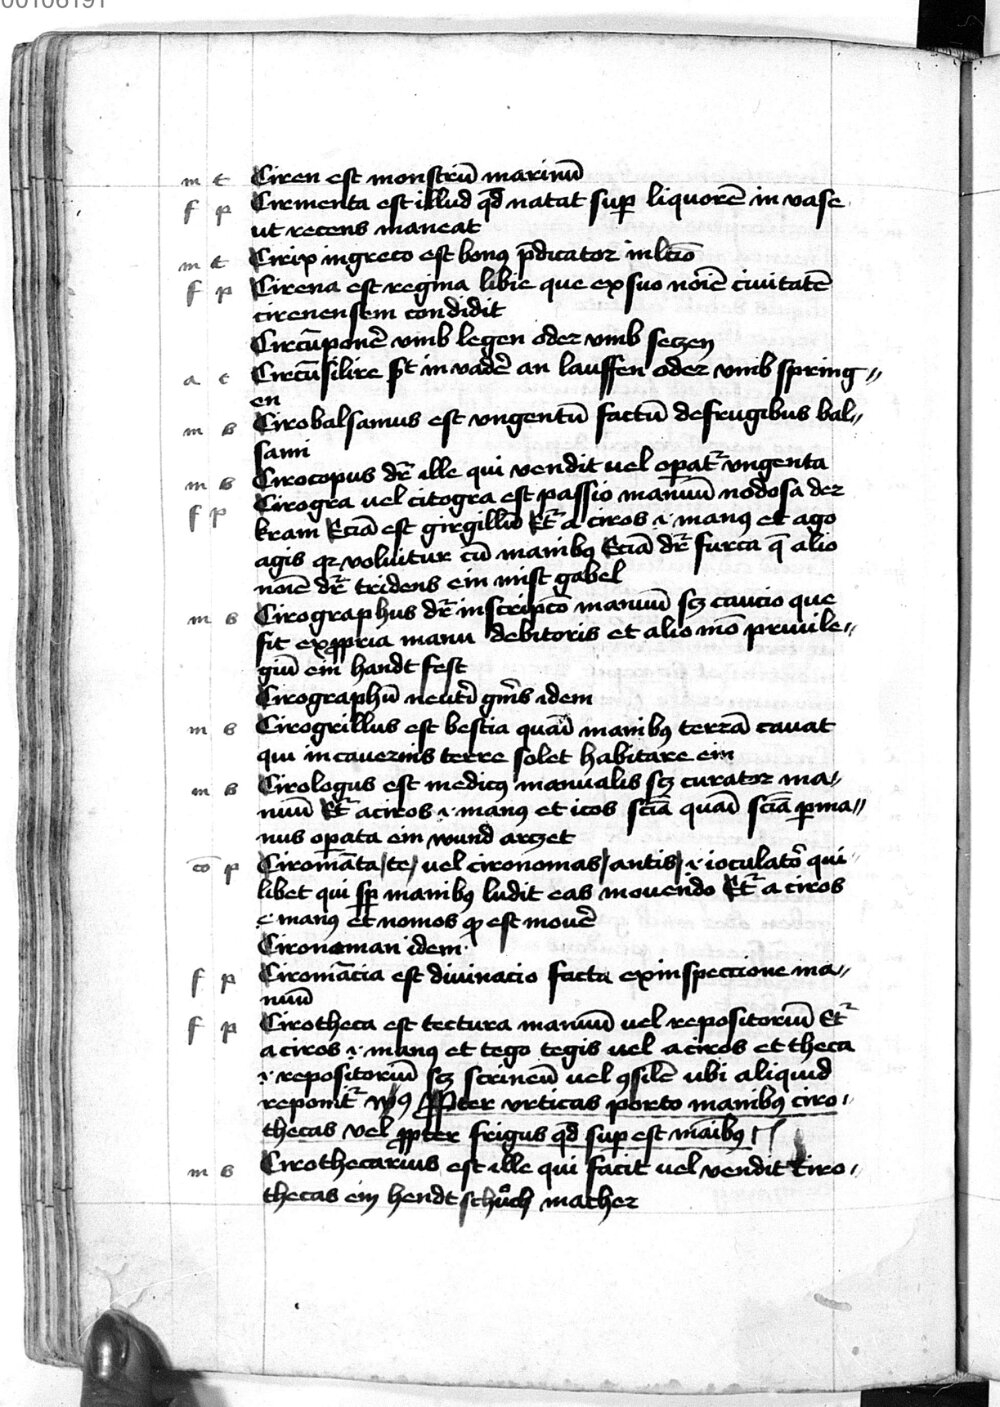 00106191
m t Ciren est monstrū marinū
f p Cirmenta est illud qd̄ natat sup̄ liquorē in vase
ut recens maneat
m t Cirix ingreco est bonꝰ p̄dicator in ltīo
f p Cirena est regina libie que ex suo noīe civitatē
cirenensem condidit
Circūponē̄ vmb legen oder vmb seczen
a t Circūsilire st̄ invadē̄ an lauffen oder vmb spring〃
en
m s Cirobalsamus est vngentū factū de frugibus bal〃
sami
m s Cirocopus dr̄ ille qui vendit vel oꝑat᷑ vngenta
f p Cirogra vel citogra est passio manuū nodosa der
kram Eciā est girgillū Et᷑ a ciros .i. manꝰ et ago
agis qꝛ voluitur cū manibꝰ Eciā dr̄ furca q̄ alio
noīe dr̄ tridens ein mist gabel
m s Cirographus dr̄ inscripcō manuū sꝫ caucio que
fit ex ꝓpria manu debitoris et alio mō priuile〃
giū ein handt fest
Cirographū neutri gn̄is idem
m s Cirogrillus est bestia quasi manibꝰ terrā cauat
qui in cavernis terre solet habitare ein
m s Cirologus est medicꝰ manualis sꝫ curator ma〃
nuū Et᷑ aciros .i. manꝰ et icos sciā quasi sciā ꝑ ma〃
nus oꝑata ein wund arczet
cō p Ciromāta/te/ vel cironomas/antis/ .i. ioculatōr qui
libet qui sup̄ manibꝰ ludit eas movendo Et᷑ a ciros
.i. manꝰ et nomos qd̄ est movē̄
Cironoman idem
f p Ciromācia est divinacio facta ex inspeccione ma〃
nuū
f p Cirotheca est tectura manuū vel repositoriū Et᷑
a ciros .i. manꝰ et tego tegis vel a ciros et theca
.i. repositoriū sꝫ scrineū vel ꝯsilē ubi aliquid
reponit᷑ vꝰ ꝓpter vrticas porto manibꝰ ciro〃
thecas vel ꝓpter frigus qd̄ sup̄ est māibꝰ
m s Cirothecarius est ille qui facit vel vendit Ciro〃
thecas ein hendt schůch macher